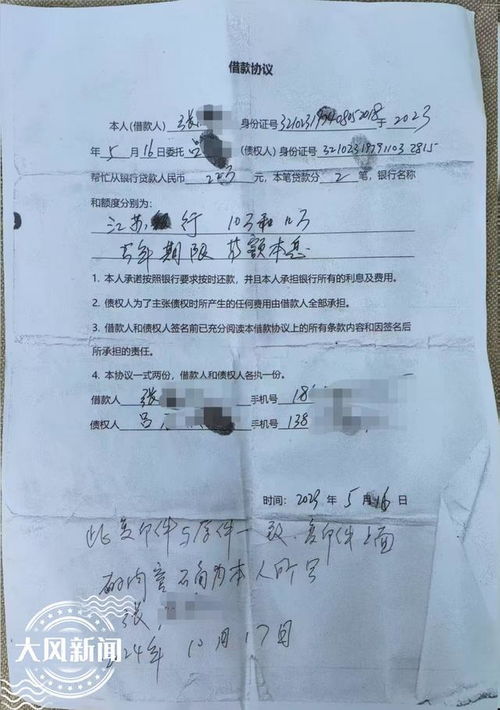 借款协议
本人(借款人) 张 身份证号 于 2023
年 5 月 16 日委托 吕 (债权人) 身份证号
帮忙从银行贷款人民币 元,本笔贷款分 2 笔,银行名称
和额度分别为:
江苏 行 10万和
年期限 等额本息
1. 本人承诺按照银行要求按时还款,并且本人承担银行所有的利息及费用。
2. 债权人为了主张债权时所产生的任何费用由借款人全部承担。
3. 借款人和债权人签名前已充分阅读本借款协议上的所有条款内容和因签名后
所承担的责任。
4. 本协议一式两份,借款人和债权人各执一份。
借款人 张 手机号 18
债权人 吕 手机号 138
时间: 2023 年 5 月 16 日
此复印件与原件一致,复印件上面
的内容 为本人所写
张
2024年 10月17日
大风新闻